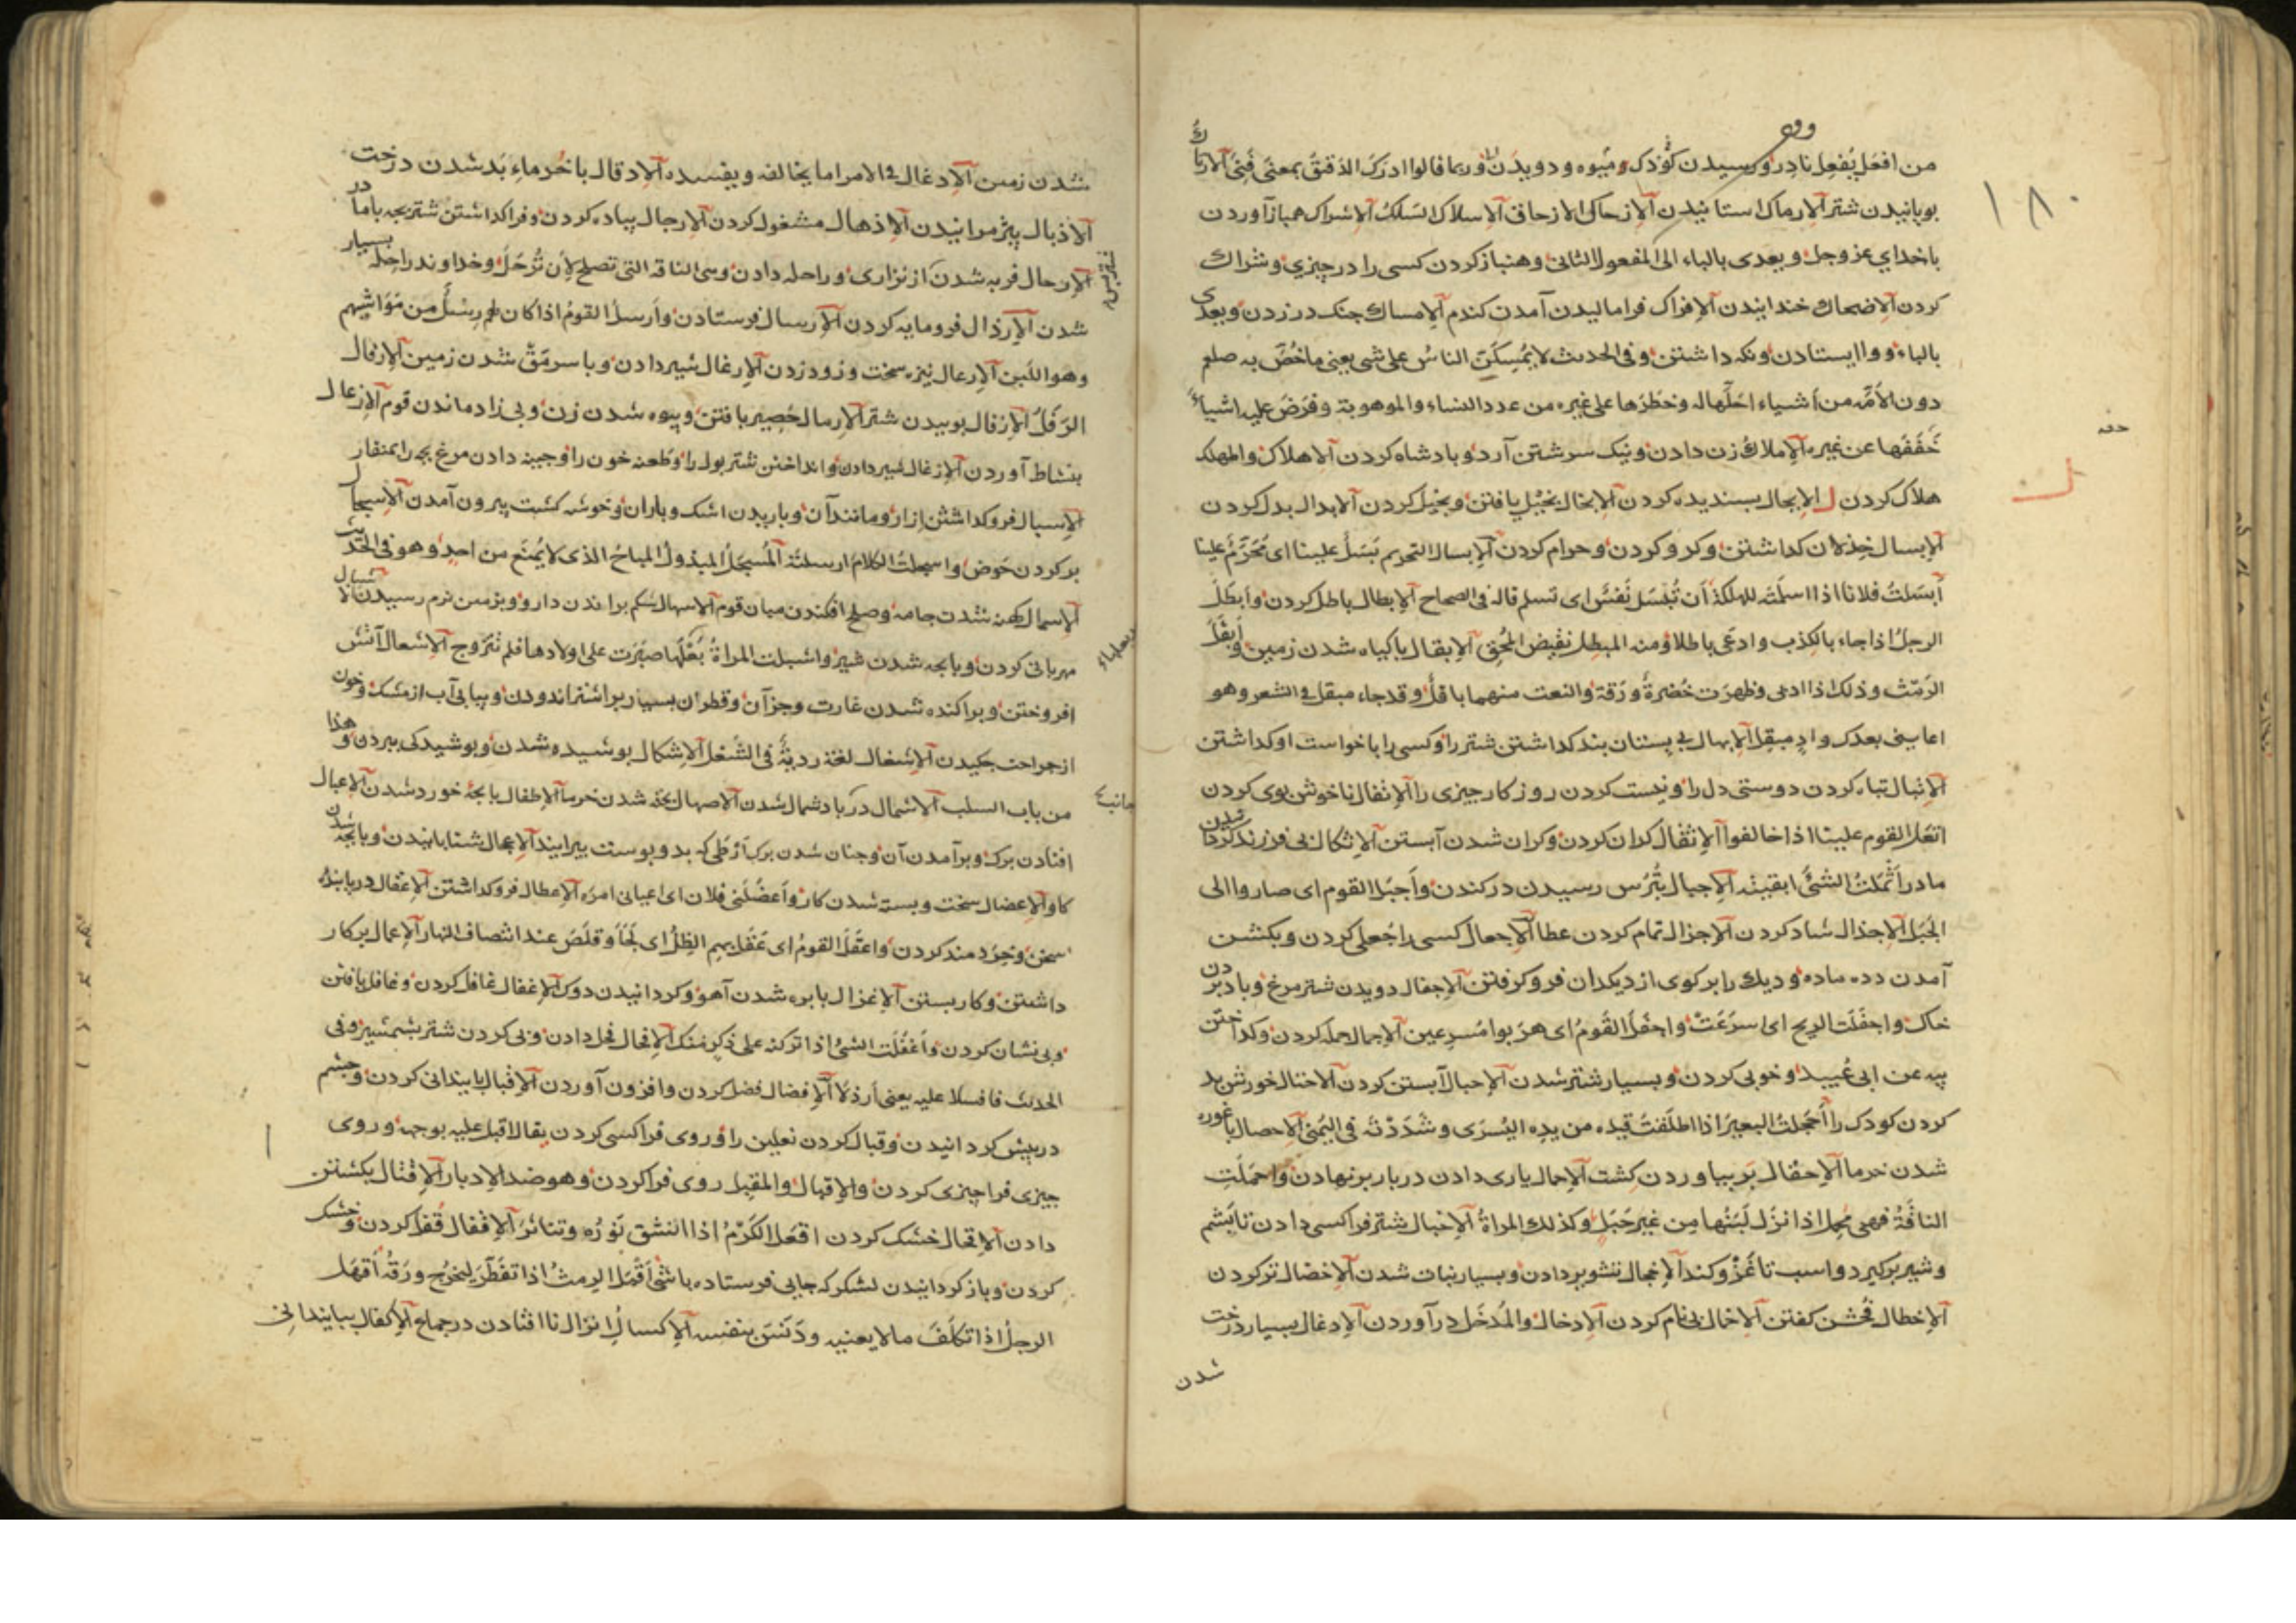 من افعل يُفعِل نادر و رسیدن کودک و میوه و دویدن و ربما قالوا ادرک الدقیق بمعنی فنی الارتاک
بوپانیدن شتر الارماک استانیدن الازحاک الازحاف الاسلاک السَلکُ الاشراک همباز آوردن
باخدای عزوجل و یعدی بالباء الی المفعول الثانی و هنباز کردن کسی را در چیزی و شراک
کردن الاضحاک خندانیدن الافراک فرامالیدن آمدن کندم الامساک چنک در زدن و یعدی
بالباء و وا ایستادن و نکه داشتن و فی الحدیث لا یُمسِکَنَّ الناسُ علیَّ شی یعنی ما خُصَّ به صلعم
دون الامّة من أشیاء احَلّها له و حَظَرَها علی غیره من عدد النساء والموهوبة و فَرَضَ علیه اشیاءً
خَفَّفَها عن غیره الاملاک زن دادن و نیک سرشتن آرد و پادشاه کردن الاهلاک والمهلک
هلاک کردن ل الابجال بسندیده کردن الابخال بخیل یافتن و بخیل کردن الابدال بدل کردن
الابسال خذلان کداشتن و کرو کردن و حرام کردن الابسال التحریم بَسَلَ علینا ای حَرَّمَ علینا
أبسَلتُ فلاناً اذا اسلمتَه للهلکة أن تُبْسَلَ نَفسٌ ای تسلم قاله فی الصحاح الابطال باطل کردن و أبطَلَ
الرجلُ اذا جاء بالکذب و ادعی باطلا و منه المبطل نقیض المُحِقّ الابقال باکیاه شدن زمین و أبقَلَ
الرَمْثُ و ذلک اذا ادبی و ظهرَت خُضرةُ وَرَقهِ والنعت منهما باقلٌ و قد جاء مبقل فی الشعر و هو
اعاشنی بعدک وادٍ مبقِلٌ الابهال بی پستان بند کداشتن شتر را و کسی را باخواست او کداشتن
الاتبال تباه کردن دوستی دل را و نیست کردن روزکار چیزی را الاتفال ناخوش بوی کردن
اثعل القوم علینا اذا خالفوا الاثقال کران کردن و کران شدن آبستن الاثکال بی فرزند کردن
مادر أثمَلتُ الشیءَ ابقیته الاجبال بتُرس رسیدن در کندن و أجبَل القوم ای صاروا الی
الجَبَل الاجذال شاد کردن الاجزال تمام کردن عطا الاجعال کسی را جُعلی کردن و بکشن
آمدن دده ماده و دیک را بر کوی از دیکدان فرو کرفتن الاجفال دویدن شترمرغ و باد بردن
خاک و اجفَلَت الریح ای سرَعَتْ و اجفَلَ القَومُ ای هربوا مُسرِعین الاجمال جمله کردن و کداختن
پیه عن ابی عُبید و خوبی کردن و بسیار شتر شدن الاحبال آبستن کردن الاحتال خورش بد
کردن کودک را أحجَلتُ البعیرَ اذا اطلَقتَ قیده من یده الیُسرَی و شَدَدْتَه فی الیُمنی الاحصال باغوره
شدن خرما الاحقال بر بیاوردن کشت الاحمال یاری دادن در بار برنهادن و احمَلَت
الناقةُ فهی محمل اذا نزل لبَنُها مِن غیر حَبَلٍ و کذلک المراة الاخبال شتر فراکسی دادن تا پشم
و شیر برکیرد و اسب تا غَزْو کند الاخجال تشویر دادن و بسیار نبات شدن الاخضال تر کردن
الاخطال فحش کفتن الاخمال بی نام کردن الادخال والمُدخَل درآوردن الادغال بسیار درخت
شدن
۱۸۰
شدن زمین الادغال فی الامر اما یخالفه و یفسده الادقال باخرماء بد شدن درخت
الاذبال پژمرانیدن الاذهال مشغول کردن الارجال پیاده کردن و فراکداشتن شتربچه با مادر
الارحال فربه شدن از نزاری و راحله دادن و سی الناقة التی تصلح لأن تُرحَلَ و خداوند راحله بسیار
شدن الارذال فرومایه کردن الارسال فرستادن و أرسل القومُ اذا کان لهم رِسْلٌ من مَوَاشیهم
و هو اللَبن الارعال نیزه سخت و زود زدن الارغال شیر دادن و با سرمق شدن زمین الارفال
الرَفَلُ الارقال پوییدن شتر الارمال حصیر بافتن و بیوه شدن زن و بی زاد ماندن قوم الازعال
بنشاط آوردن الازغال شیر دادن و انداختن شتر بول را و طعنه خون را و چینه دادن مرغ بچه را بمنقار
الاسبال فروکداشتن إزار و مانند آن و باریدن اشک و باران و خوشه کشت بیرون آمدن الاسجال
پر کردن حَوض و اسجلتُ الکلام ارسلتُه المُسجَلُ المبذولُ المباحُ الذی لا یُمنَع من احدٍ و هو فی الحدیث
الاسمال کهن شدن جامه و صلح افکندن میان قوم الاسهال شکم براندن دارو و بزمین نرم رسیدن الاشبال
مهربانی کردن و بابچه شدن شیر و اشبلت المراةُ بُعُلَها صبَرَت علی اولادها فلم تتزوج الاشعال آتش
افروختن و پراکنده شدن غارت و جز آن و قطران بسیار بر اشتر اندودن و بیابی آب از مشک و خون
از جراحت چکیدن الاشغال لغة ردیةٌ فی الشُغل الاشکال پوشیده شدن و پوشیدکی ببردن و هذا
من باب السلب الاشمال در باد شمال شدن الاصهال بخته شدن خرما الاطفال بابچه خورد شدن الاعبال
افتادن برک و برآمدن آن و چنان شدن برک أرطی که بدو پوست بپیرایند الاعجال شتابانیدن و بابچه شدن
کاو الاعضال سخت و بسته شدن کار و أعضَلَنی فلان ای اعیانی امرُه الاعطال فروکداشتن الاعقال دریابنده
سخن و خِرَدمند کردن و اعقَل القومُ ای عَقَلَ بهم الظِلُّ ای لَجَأ و قلَصَ عند انتصاف النهار الاعمال برکار
داشتن و کار بستن الاغزال بابره شدن آهو و کردانیدن دوک الاغفال غافل کردن و غافل یافتن
و بی نشان کردن و أغفَلت الشیُ اذا ترکته علی ذکر منک الافحال فحل دادن و بی کردن شتر بشمشیر و فی
الحدیث فافسلا علیه یعنی أرذلا الافضال فضل کردن و افزون آوردن الاقبال بابیندانی کردن و چشم
در پیش کردانیدن و قبال کردن نعلین را و روی فراکسی کردن یقال اقبل علیه بوجهه و روی
چیزی فراچیزی کردن والاقبال والمقبل روی فراکردن و هو ضد الادبار الاقتال بکشتن
دادن الاقحال خشک کردن اقعَلَ الکَرْمُ اذا انشق نَورُه و تناثر الاقفال قُفل کردن و خشک
کردن و باز کردانیدن لشکر که جایی فرستاده باشی أقمَل الرِمثُ اذا تفَطَّر لیخرُج ورَقُه أقهَل
الرجلُ اذا تکلَّفَ ما لا یعنیه و دَنَّسَ بنفسه الاکسال انزال نا افتادن در جماع الاکفال ببایندانی